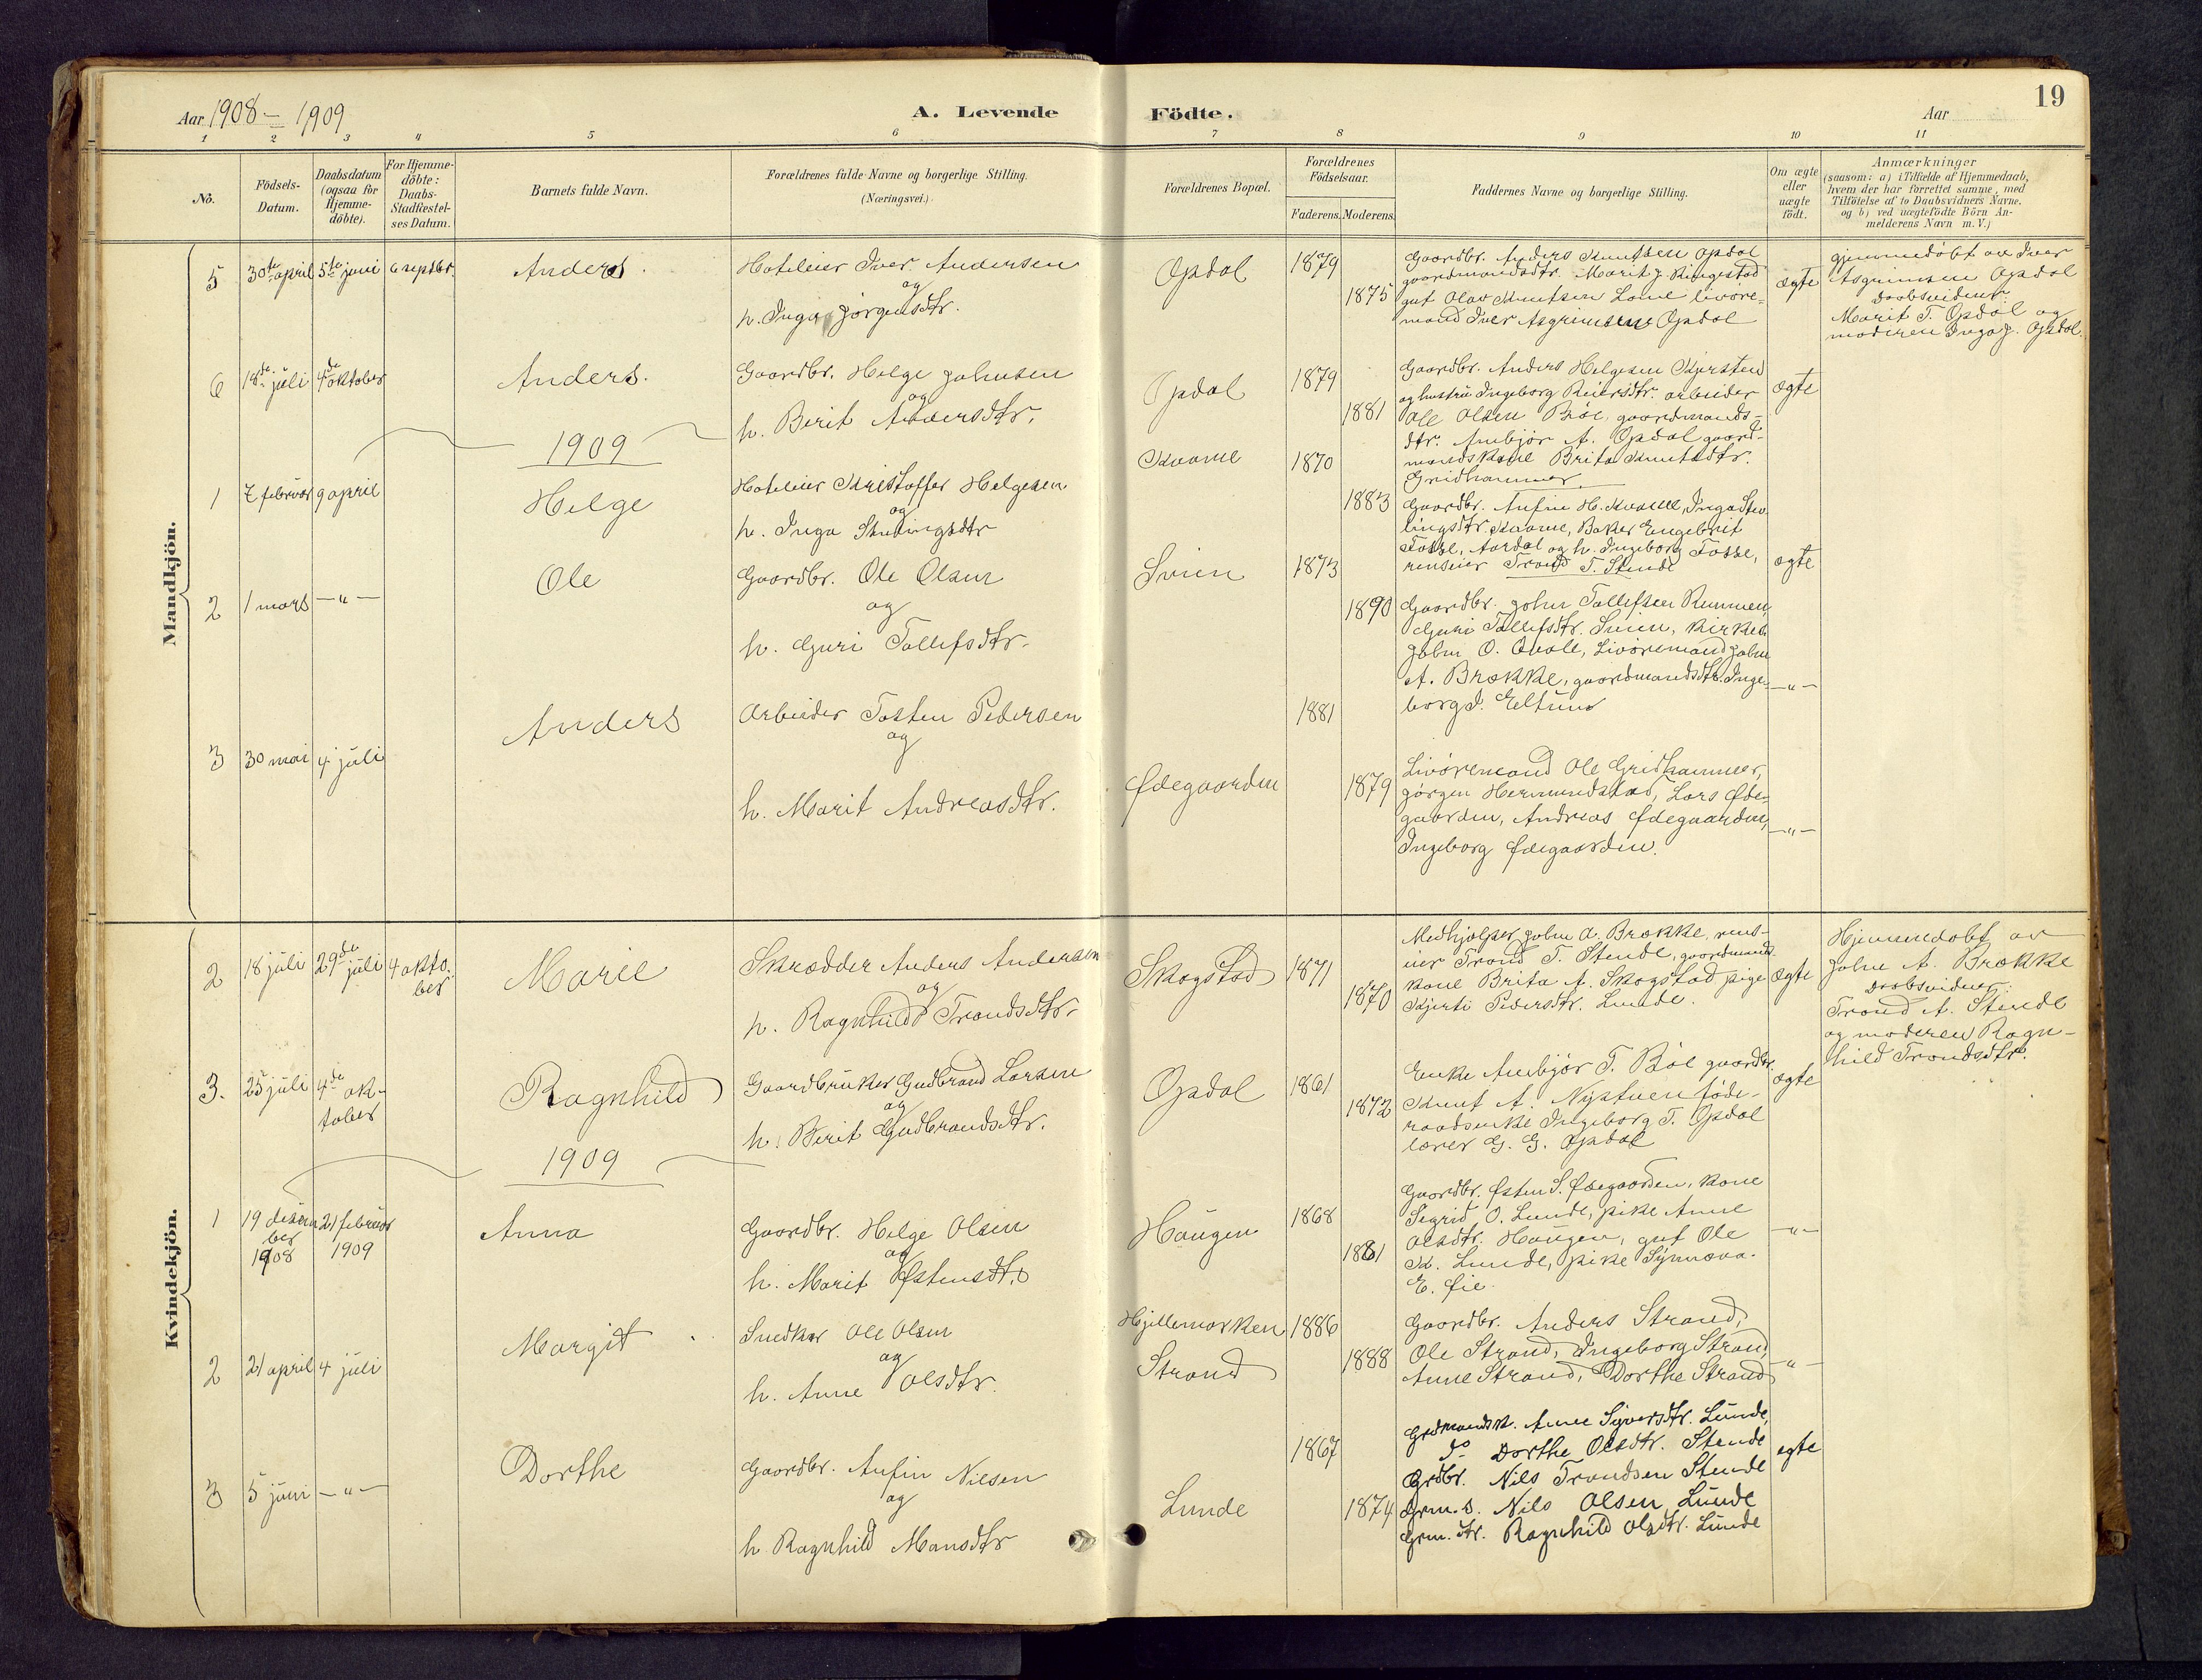 Aar 1908 – 1909
A. Levende Födte.
Aar
19
1 2 3 4 5 6 7 8 9 10 11
No.
Födsels-Datum.
Daabsdatum (ogsaa for Hjemme-döbte).
For Hjemme-döbte: Daabs-Stadfæstel-ses Datum.
Barnets fulde Navn.
Forældrenes fulde Navne og borgerlige Stilling. (Næringsvei.)
Forældrenes Bopæl.
Forældrenes Födselsaar.
Faderens. Moderens.
Faddernes Navne og borgerlige Stilling.
Om ægte eller uægte födt.
Anmærkninger (saasom: a) i Tilfælde af Hjemmedaab, hvem der har forrettet samme, med Tilföielse af to Daabsvidners Navne. og b) ved uægtefödte Börn An-melderens Navn m. V.)
Mandkjön.
5 30te april 5te juni 6 septbr. Anders.
Hoteleier Iver Andersen
og
h. Inga Jörgensdtr.
Opdal 1879 1875
Gaardbr. Anders Knutsen Opdal
gaardmandsdtr. Marit J. Ringestad
gut Olav Knutsen Lome livöre-
mand Iver Asgrimsen Opdal
ægte
Hjemmedöbt av Iver
Asgrimsen Opdal
Daabsvidner:
Marit T. Opdal og
moderen Inga J. Opdal.
6 18de juli 4de oktober Anders.
Gaardbr. Helge Johnsen
og
h. Berit Andersdtr.
Opdal 1879 1881
Gaardbr. Anders Helgesen Kjerstein
og hustru Ingeborg Reiersdtr. arbeider
Ole Olsen Böe, gaardmands-
dtr. Ambjör A. Opdal gaard-
mandskone Brita Knutsdtr.
Gridhammer
ægte
1909
1 7 februar 9 april Helge
Hoteleier Kristoffer Helgesen
og
h. Inga Stulingsdtr
Kvame 1870 1883
Gaardbr. Anfin H. Kvame, Inga Stu-
lingsdtr. Kvame, Baker Engebrit
Fosse, Aardal og h. Ingeborg Fosse,
renseier Trond T. Stende
ægte
2 1 mars – " – Ole
Gaardbr. Ole Olsen
og
h. Guri Tollefsdtr.
Svien 1873 1890
Gaardbr. John Tollefsen Rummen,
Guri Tollefsdtr. Svien, kirkes.
John O. Qvale, Livöremand John
A. Brække, gaardmandsdtr. Inge-
borg I. Eltun
– " –
3 30 mai 4 juli Anders
Arbeider Tosten Pedersen
og
h. Marit Andreasdtr.
Ødegaarden 1881 1879
Livöremand Ole Gridhammer,
Jörgen Hermundstad, Lars Øde-
gaarden, Andreas Ødegaarden,
Ingeborg Ødegaarden.
– " –
Kvindekjön.
2 18 juli 29de juli 4 okto-
ber
Marie
Skrædder Anders Andersen
og
h. Ragnhild Trondsdtr.
Skogstad 1871 1870
Medhjælper John A. Brække, rens-
eier Trond T. Stende, gaardmand-
kone Brita A. Skogstad pige
Kjersti Pedersdtr. Lunde.
ægte
Hjemmedöbt av
John A. Brække
Daabsvidner:
Trond A. Stende
og moderen Ragn-
hild Trondsdtr.
3. 25 juli 4de ok-
tober
Ragnhild
Gaardbruker Gudbrand Larsen
og
h. Berit Gudbrandsdtr.
Opdal 1861 1872
Enke Ambjör T. Böe gaardbr.
Knut A. Nystuen föde-
raadsenke Ingeborg T. Opdal
lærer G. G. Opdal
ægte
1909
1 19 desem-
ber
1908
21 februar
1909
Anna
Gaardbr. Helge Olsen
og
h. Marit Østensdtr.
Haugen 1868 1881
Gaardbr. Østen S. Ødegaarden, kone
Sigrid O. Lunde, pike Anne
Olsdtr. Haugen, gut Ole
K. Lunde, pike Synnøva
E. Øie.
– " –
2 21 april 4 juli Margit
Snedker Ole Olsen
og
h. Anne Olsdtr.
Hjellemarken
Strand
1886 1888
Gaardbr. Anders Strand,
Ole Strand, Ingeborg Strand,
Anne Strand, Dorthe Strand
– " –
3 5 juni – " – Dorthe
Gaardbr. Anfin Nilsen
og
h. Ragnhild Monsdtr
Lunde 1867 1874
Grdmandsk. Anne Syversdtr. Lunde,
do Dorthe Olsdtr. Stende
Grdbr. Nils Trondsen Stende
Grm.s. Nils Olsen Lunde
Grm.dtr. Ragnhild Olsdtr. Lunde
egte